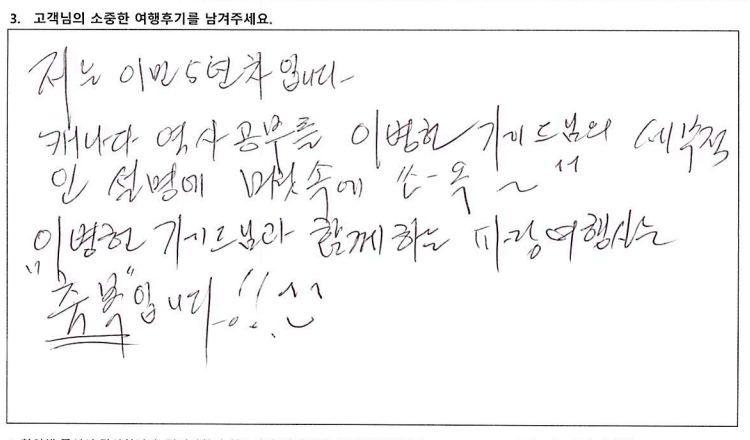 3. 고객님의 소중한 여행후기를 남겨주세요.
저는 이민 5년차 입니다.
캐나다 역사 공부를 이병헌 가이드님의 세부적
인 설명에 머릿속에 쏘-옥 ~
이병헌 가이드님과 함께하는 파랑여행사는
"축복"입니다!!